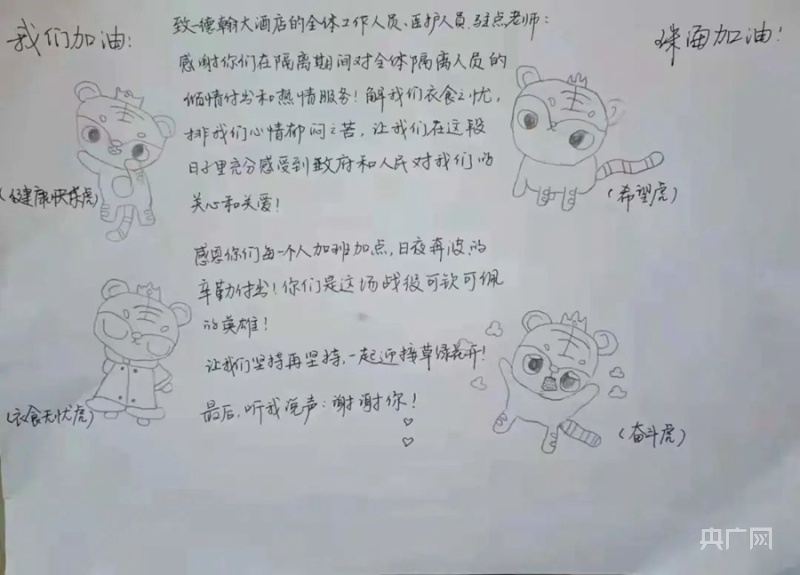 我们加油！
致德翰大酒店的全体工作人员、医护人员、驻点老师：
珠海加油！
感谢你们在隔离期间对全体隔离人员的
倾情付出和热情服务！解我们衣食之忧，
排我们心情郁闷之苦，让我们在这段
日子里充分感受到政府和人民对我们的
关心和关爱！
（健康快乐虎）
（希望虎）
感恩你们每一个人加班加点，日夜奔波的
辛勤付出！你们是这场战役可钦可佩
的英雄！
让我们坚持再坚持，一起迎接草绿花开！
最后，听我说声：谢谢你！
（衣食无忧虎）
（奋斗虎）
央广网
cnr.cn